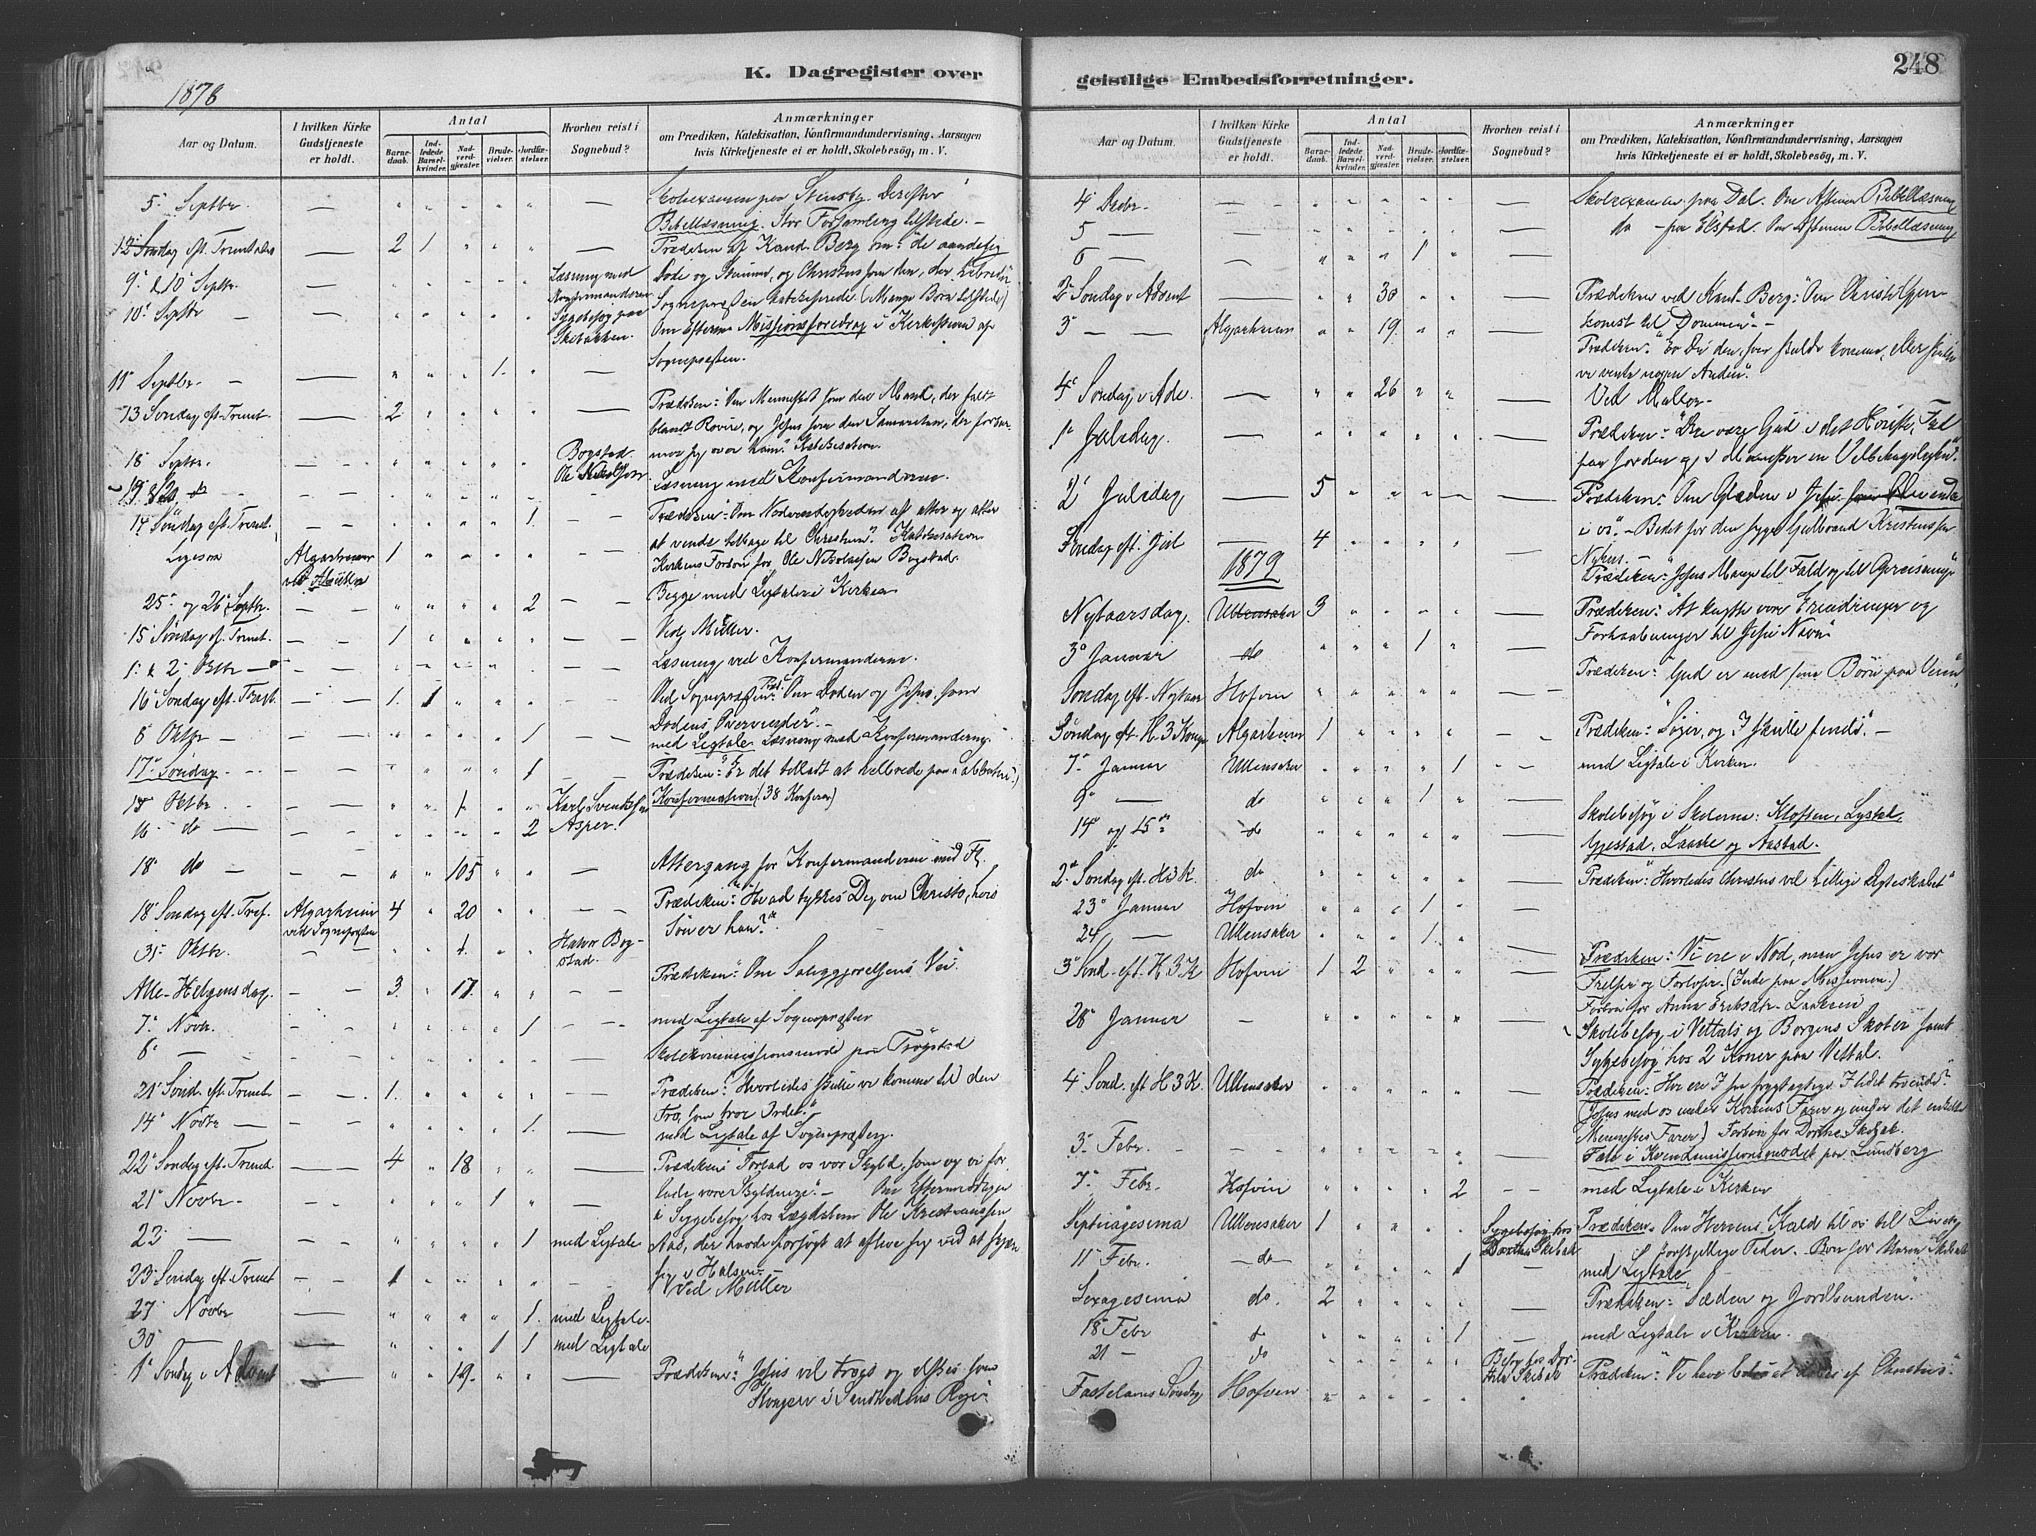 K. Dagregister over
1878
Aar og Datum.
I hvilken Kirke Gudstjeneste er holdt.
Antal
Barnedaab.
Indledede Barselkvinder.
Nadverdgjæster.
Brudevielser.
Jordfæstelser.
Hvorhen reist i Sognebud?
Anmærkninger
om Prædiken, Katekisation, Konfirmandundervisning, Aarsagen
hvis Kirketjeneste ei er holdt, Skolebesøg, m. V.
5 Septbr. Skoleexamen paa Stensby. Derefter
Bibellæsning. Stor Forsamling tilstede. —
12 Søndag eft. Trinitatis 2 1 Prædiken af Kand. Berg om: de aandelig
9 & 10 Septbr. Læsning med Konfirmanderne Døde og Stumme, og Christus som den, der
10 Septbr Sygebesøg paa Skebakken. Sognepræsten katekiserede (Mange Børn tilstede)
Om Efterm. Missionsforedrag i Kirkestuen af
Sognepræsten.
11 Septbr. — 1.
13 Søndag eft. Trinit. 2 Prædiken: Om Mennesket som den Mand, der faldt
blandt Røvere, og Jesus som den Samaritan, der forbar-
18 Septbr. Bogstad. mer sig over ham. Katekisation.
19 & 20 do Ole Læsning med Konfirmanderne.
14 Søndag eft. Trinit. 1. Prædiken: Om Nødvendigheden af atter og atter
at vende tilbage til Christum. Katekisation
Ligesaa Algarheim ved Müller 1 Kirkens Forbøn for Ole Nikolaisen Bogstad.
25 og 26 Septbr. 2 Begge med Ligtale i Kirken
15 Søndag ef. Trinit. 1 Ved Müller.
1 & 2 Oktbr — Læsning med Konfirmanderne.
16 Søndag eft. Trinit. 1. 1 Ved Sognepræsten. Præd. Om Døden og Jesus som
Dødens Overvinder. —
8 Oktbr — 1 med Ligtale. Læsning med Konfirmanderne.
17 Søndag — 1 Prædiken: "Er det tilladt at helbrede paa Sabbaten"
15 Oktbr. 1 Karl Svendsen Konfirmation (38 Konfirm.)
16 do — 2 Asper.
18 do — 105 Altergang for Konfirmanderne med Fl.
18 Søndag eft. Tref. Algarheim ved Sognepræsten 4 20 Prædiken: "Hvad tykkes Dig om Christo, hvis
31 Oktbr. 1. Halvor Bogstad. Søn er han?"
Alle-Helgensdag. 3. 17. Prædiken: Om Saliggjørelsens Vei.
7 Novbr. 1 med Ligtale af Sognepræsten
8 — Skolekommissionsmøde paa Trøgstad
21 Sønd. eft. Trinit. 1. Prædiken: "Hvorledes skulle vi komme til den
Tro, som tror Ordet."
14 Novbr — 1. med Ligtale af Sognepræsten.
22 Søndag eft. Trinit. 4 18 Prædiken: Forlad os vor Skyld, som og vi for-
21 Novbr. 1 lade vore Skyldnere". — Om Eftermiddagen
i Sygebesøg hos Lægdslem Ole Kristiansen
23 — 1 med Ligtale Aas, der havde forsøgt at aflive sig ved at skjære
sig i Halsen.
23 Søndag eft. Trinit 1 Ved Müller
27 Novbr 1. med Ligtale.
30 — 1 1 med Ligtale
1 Søndag i Advent 19. Prædiken: "Jesus vil troes og elskes som
Kongen i Sandhedens Rige."
geistlige Embedsforretninger.
248
Aar og Datum.
I hvilken Kirke Gudstjeneste er holdt.
Antal
Barnedaab.
Indledede Barselkvinder.
Nadverdgjæster.
Brudevielser.
Jordfæstelser.
Hvorhen reist i Sognebud?
Anmærkninger
om Prædiken, Katekisation, Konfirmandundervisning, Aarsagen
hvis Kirketjeneste ei er holdt, Skolebesøg, m. V.
4 Decbr. Skoleexamen paa Dal. Om Aftenen Bibellæsning
5 — do — paa Elstad. Om Aftenen Bibellæsning
6 — 1
2 Søndag i Advent 30 Prædiken ved Kand. Berg: Om Christi Gjen-
komst til Dommen" —
3 — — Algarheim 19. Prædiken: "Er Du den, som skulde komme, eller skulle
vi vente nogen Anden".
4 Søndag i Adv. 26 Ved Müller
1 Juledag Prædiken: "Ære være Gud i det Høieste, Fred
paa Jorden og i Mennesker en Velbehagelighed".
2 Juledag 5 Prædiken: Om Glæden i Jesu
i os". — Bedet for den syge Gulbrand Kristensen
Søndag eft. Jul 4 Nyhus. —
Prædiken: "Jesus Mange til Fald og til Opreisning"
1879
Nytaarsdag. Ullensaker 3 Prædiken: "At knytte vore Erindringer og
Forhaabninger til Jesu Navn"
3 Januar do 1
Søndag eft. Nytaar Hofvin Prædiken: "Gud er med sine Børn paa Veien"
Søndag eft. H. 3 Konge Algarheim 1 Prædiken: "Søger, og I skulle finde". —
7 Januar Ullensaker 1 med Ligtale i Kirken.
9 — do 1
14 og 15 do Skolebesøg i Skolerne: Kløften, Lystad,
Gjestad, Laake og Aastad.
2 Søndag eft. H3K. do Prædiken: "Hvorledes Christus vil Ægteskabet"
23 Januar Hofvin 1
24 — Ullensaker 1
3 Sønd. eft. H3K Hofvin 1 2 Prædiken: Vi ere i Nød, men Jesus er vor
Frelser og Forløser.
Forbøn for Anna Eriksdr. Laaken
28 Januar — Skolebesøg i Vettals og Borgens Skoler samt
Sygebesøg hos 2 Koner paa Vettal.
4 Sønd. eft H3K. Ullensaker Prædiken: Hvi ere I saa frygtagtige, I lidet troende?
(Jesus med os under Kirkens Farer og under det enkelte
Menneskes Farer) Forbøn for Dorthe Skebak.
3 Febr. Tale i Kvindemissionsmødet paa Lundberg
7 Febr. Hofvin 2 med Ligtale i Kirken
Septuagesima Ullensaker 1 Sygebesøg hos Dorthe Skibak Prædiken: Om Herrens Kald til os til Livets
forskjellige Tider. Bøn for
11 Febr. do 1 med Ligtale
Sexagesima do 2 Prædiken: "Sæden og Jordbunden".
18 Febr do 1 med Ligtale i Kirken.
21 — do Besøg hos Dorthe Skibak
Fastelavns Søndag Hofvin Prædiken: "Vi have